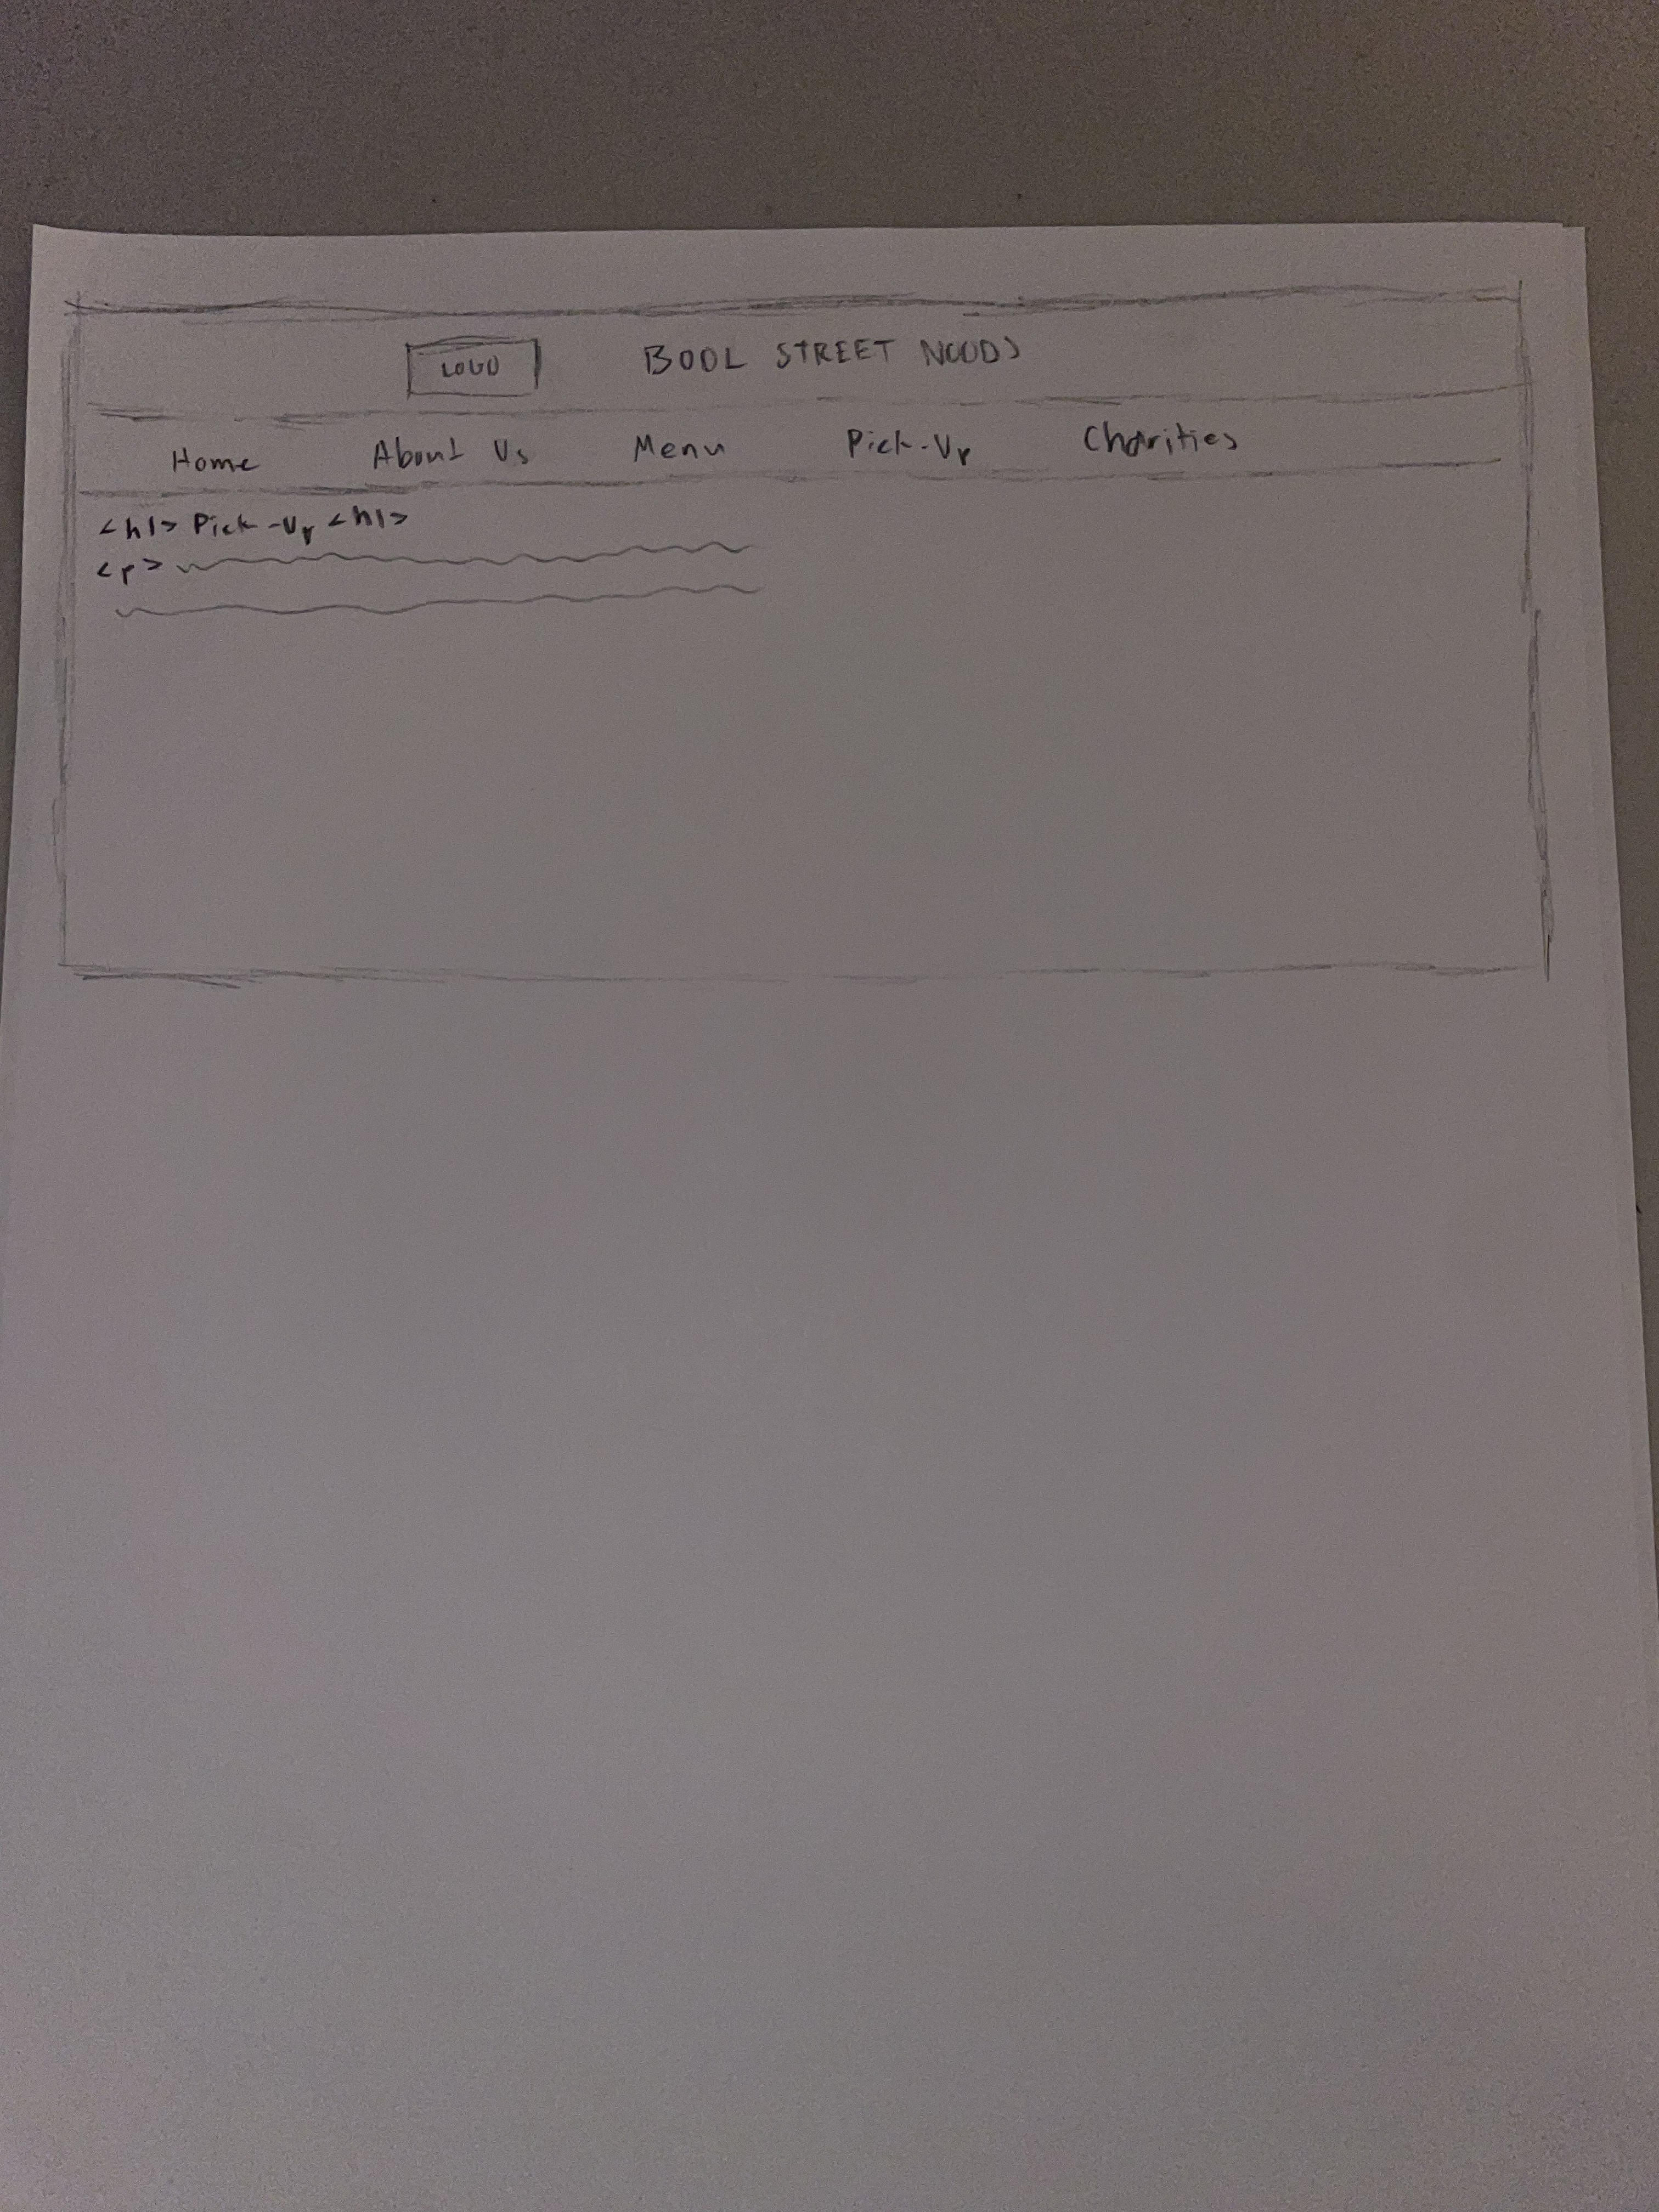 LOGO BOOL STREET NOODS
Home About Us Menu Pick-Up Charities
<h1> Pick-Up <h1>
<p>